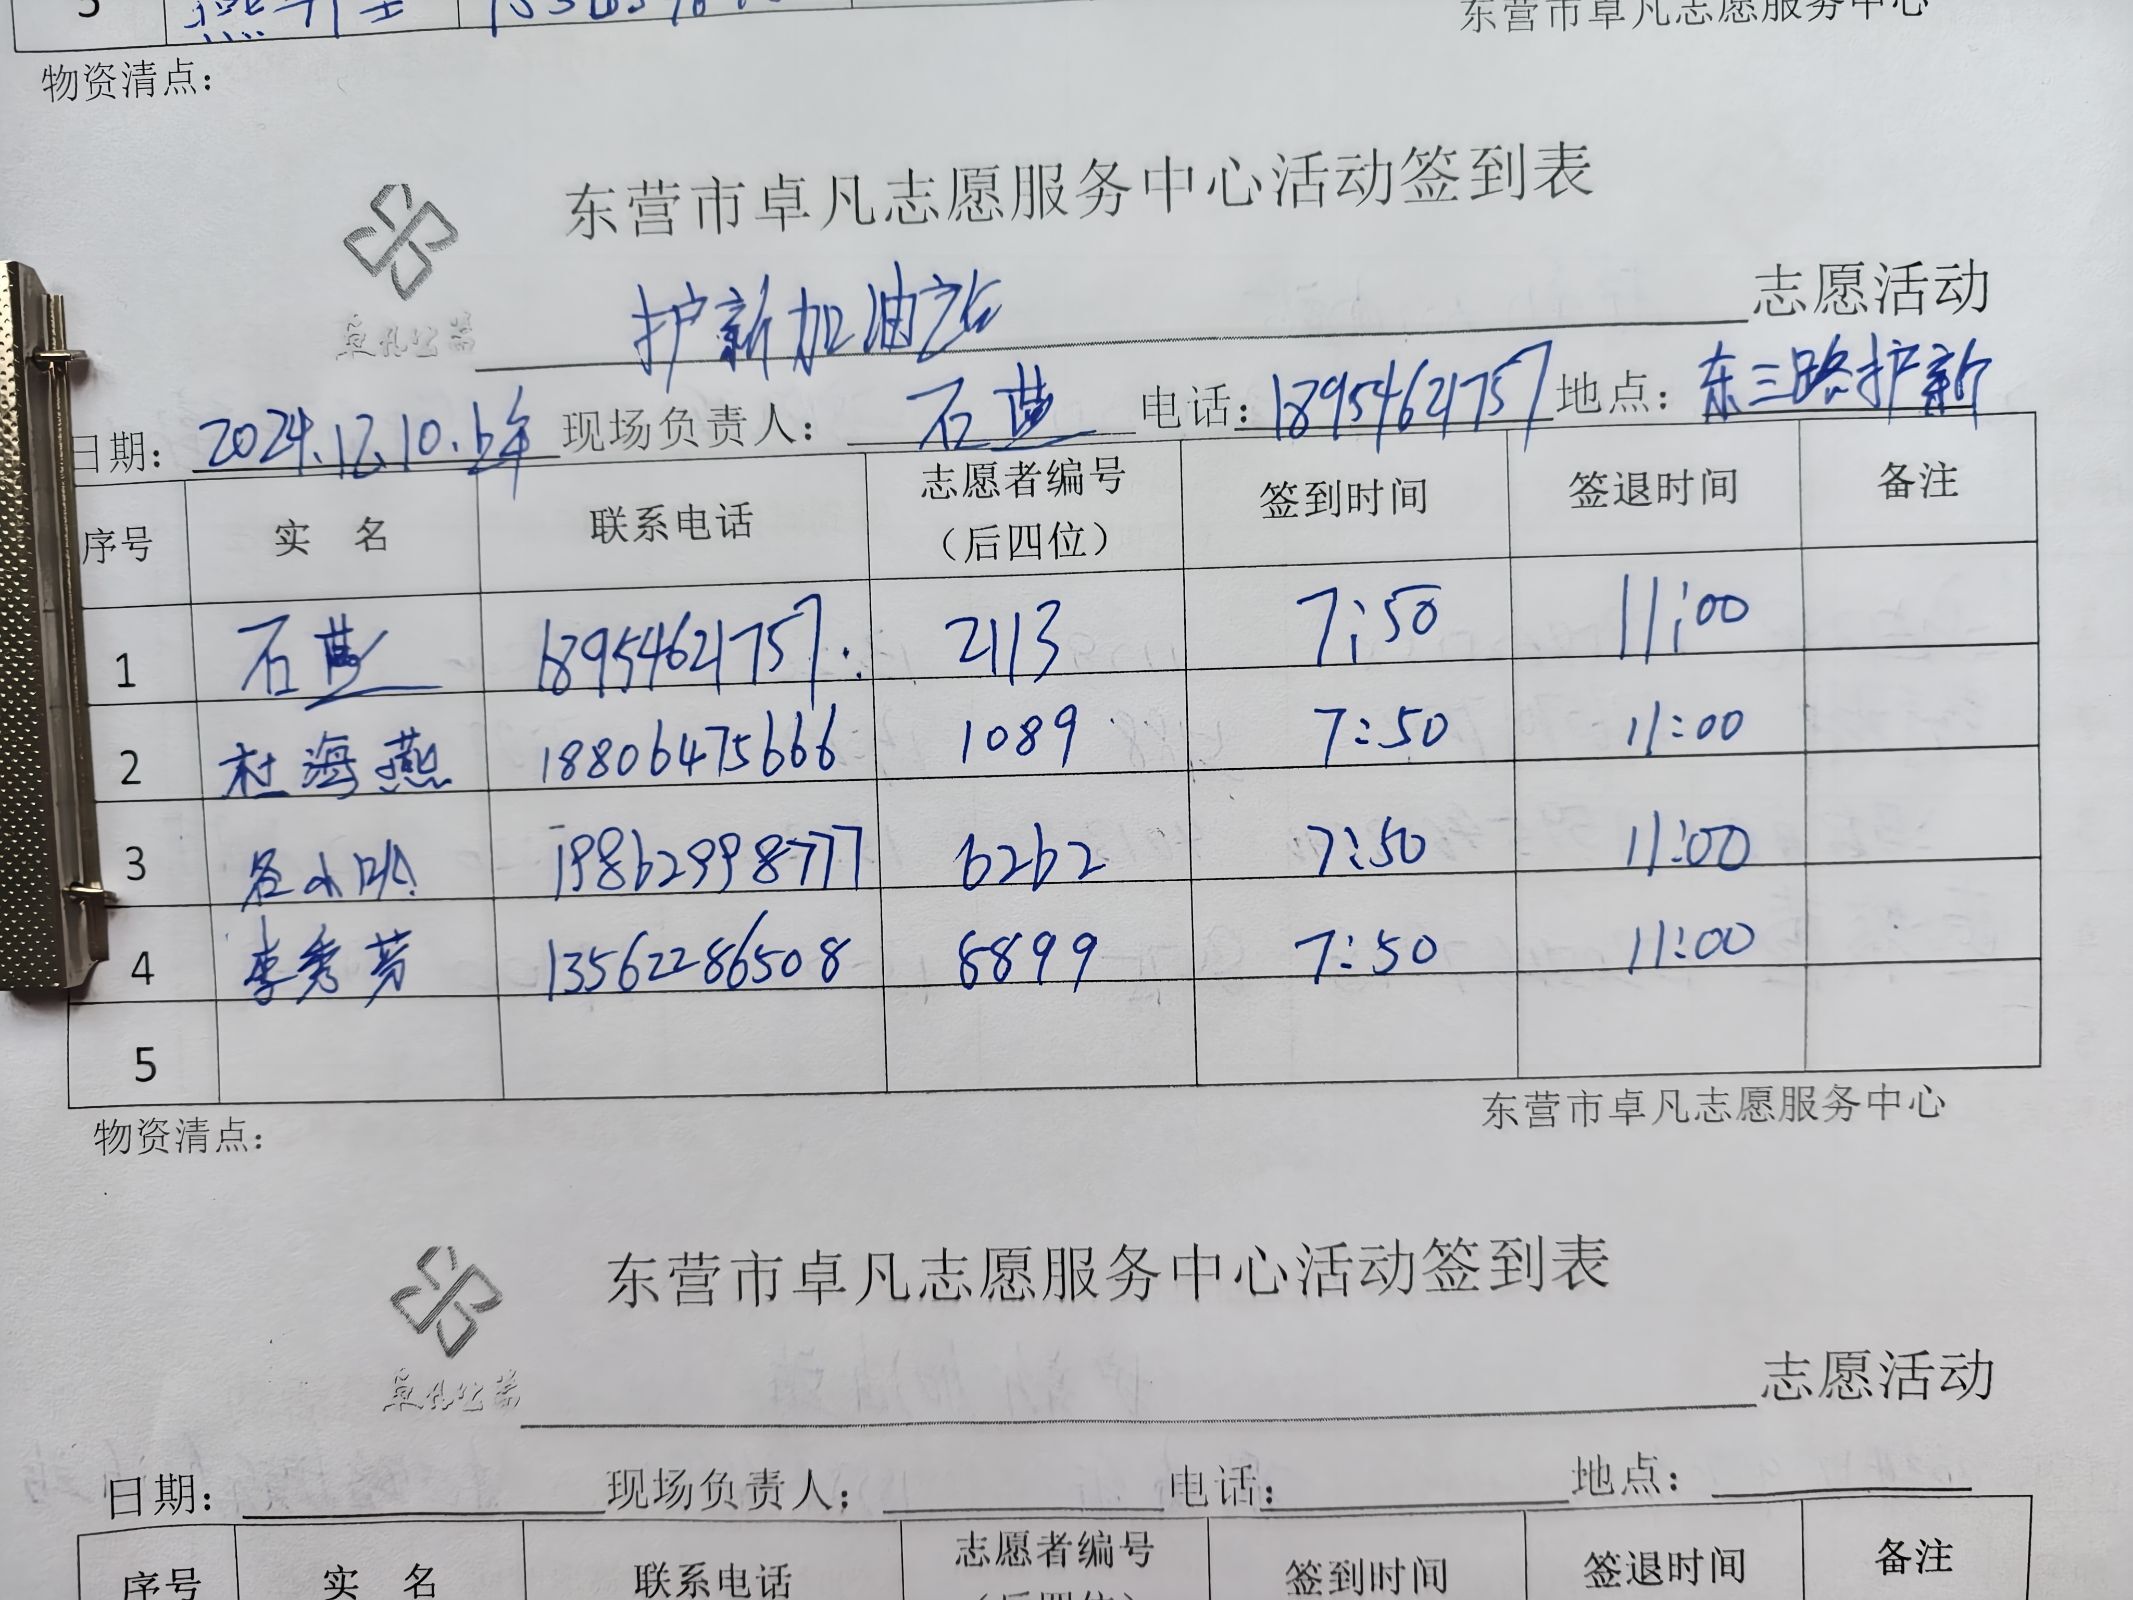 5
东营市卓凡志愿服务中心
物资清点：
东营市卓凡志愿服务中心活动签到表
卓凡公益
护新加油站 志愿活动
日期：2024.12.10.上午 现场负责人：石燕 电话：18954621757 地点：东三路护新
序号 实 名 联系电话 志愿者编号（后四位） 签到时间 签退时间 备注
1 石燕 18954621757. 2113 7:50 11:00
2 杜海燕 18806475666 1089 7:50 11:00
3 19862998777 6262 7:50 11:00
4 李秀芳 13562286508 8899 7:50 11:00
5
物资清点：
东营市卓凡志愿服务中心
东营市卓凡志愿服务中心活动签到表
卓凡公益
志愿活动
日期： 现场负责人： 电话： 地点：
序号 实 名 联系电话 志愿者编号 签到时间 签退时间 备注